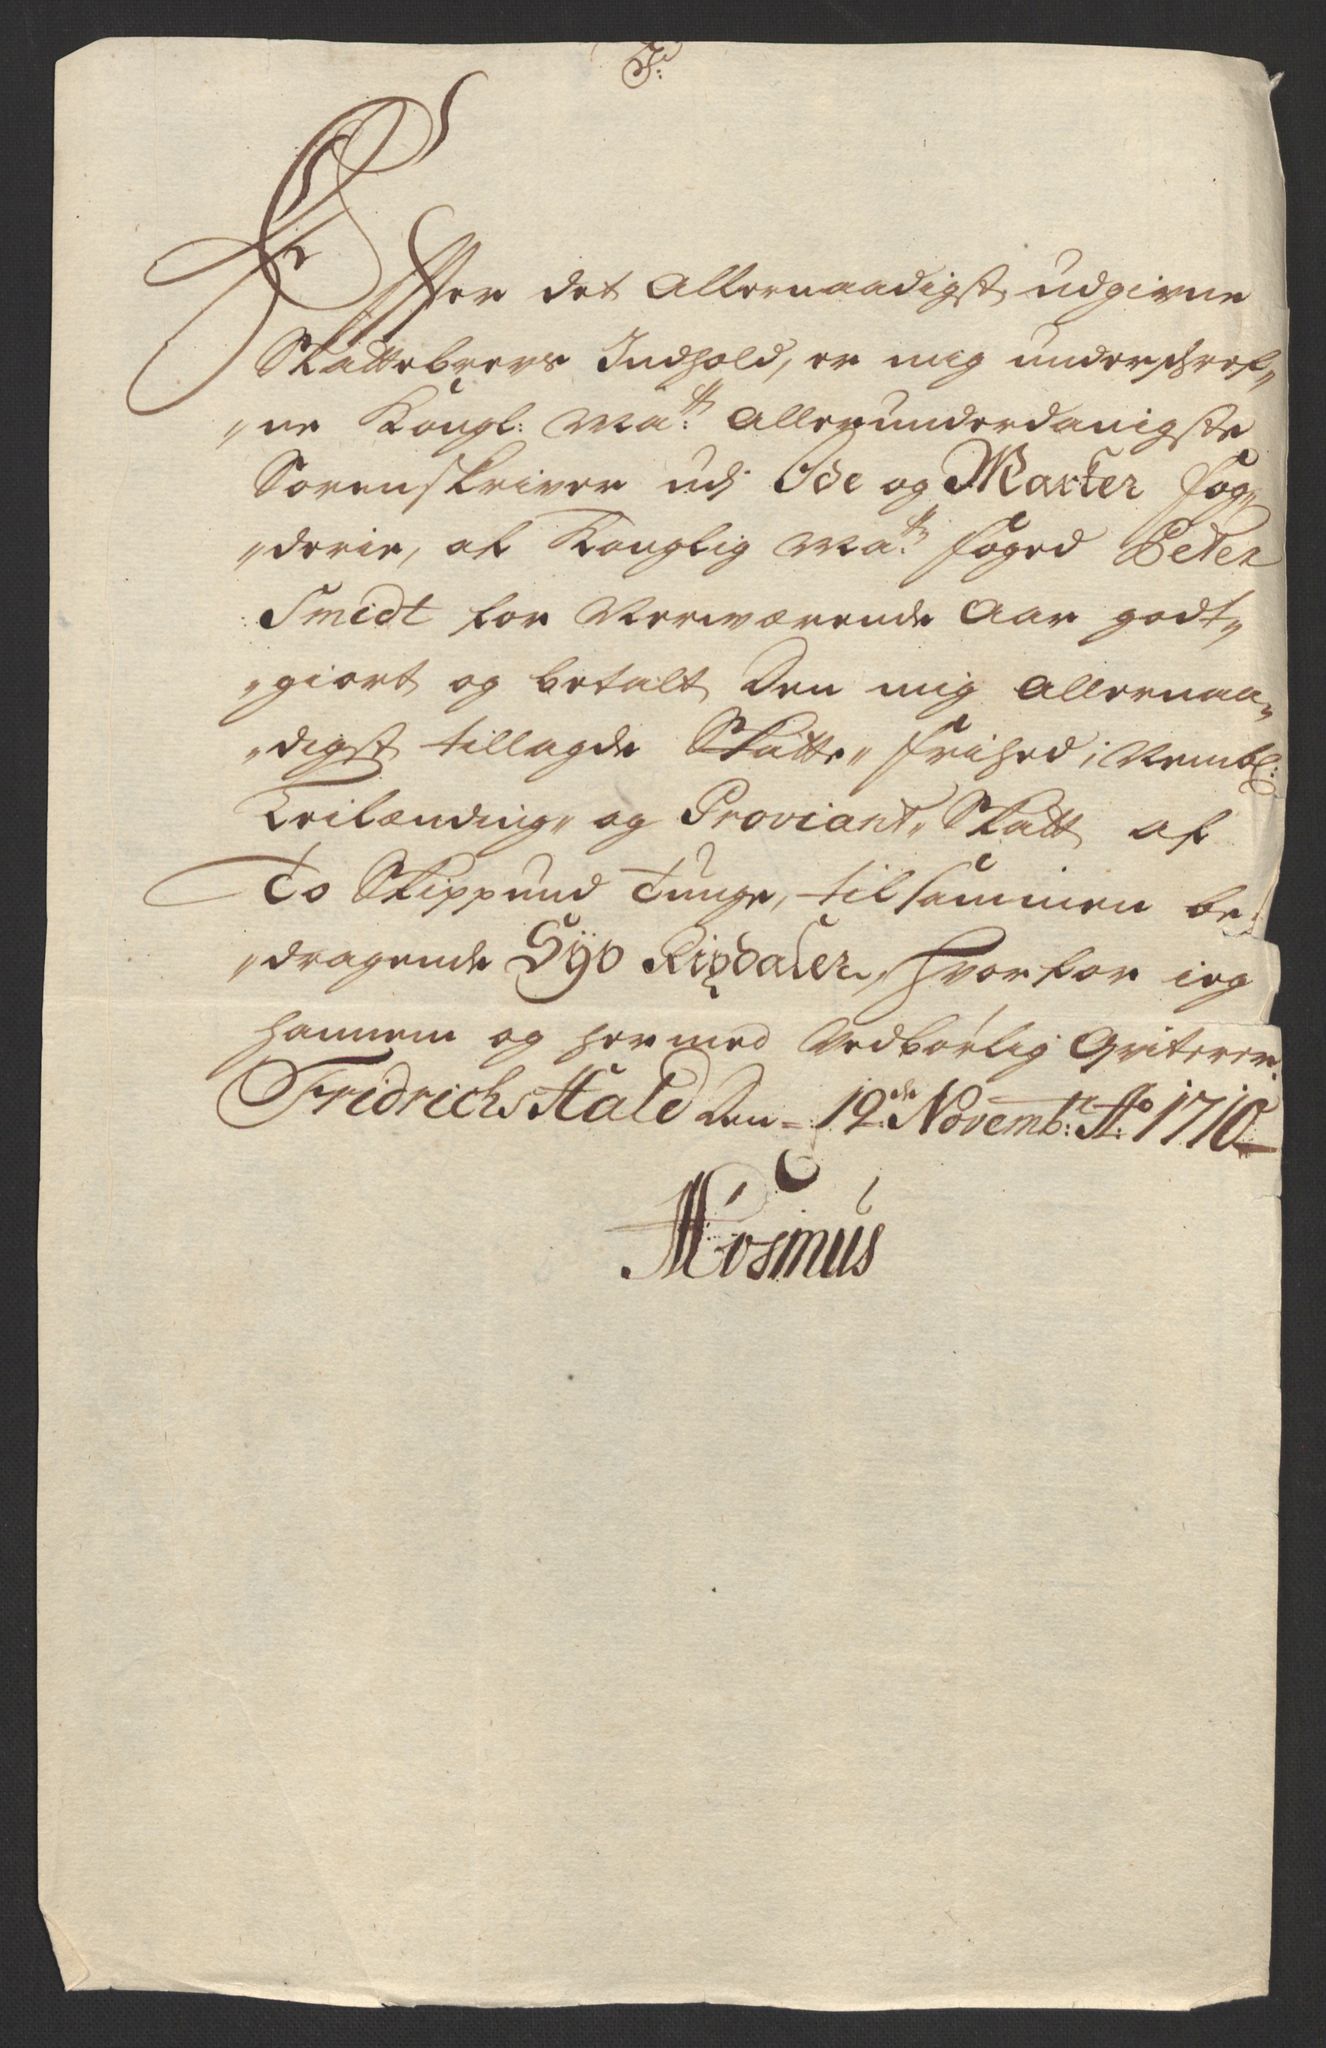 J:
Effter det Allernaadigst udgivne
Skattebrevs Indhold, er mig underschref„
„ne Kongl: Ma:ts Allerunderdanigste
Sorenskriver udj Ide og Marker fog„
„derie, af Konglig Ma:ts foged Peter
Smidt for Nerværende Aar godt„
„giort og betalt Den mig Allernaa„
„digst tillagde Skatte„ frihed, Nembl:
Leilænding„ og Proviant„ Skatt af
To Skippund Tunge, tilsammen be„
„dragende Syv Rixdaler, hvorfor ieg
hannem og hermed Vedbørlig Qviterer.
FridrichsHald Den 12de Novembr: Ao: 1710